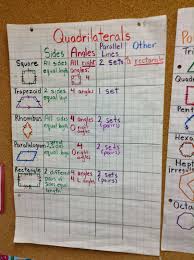 Quadrilaterals
Sides Angles Parallel Lines Other
Square All sides equal length All right angles: 4 2 sets a rectangle
Trapezoid 2 sides equal length 4 angles 1 set
Rhombus All sides equal length 4 angles 0 right angles 2 sets (pairs)
Parallelogram 4 angles 0 right angles 2 sets (pairs)
Rectangle 2 different pairs of sides equal length 4 angles 4 right angles 2 sets (pairs)
Po
Hexa
Hept
(irre
Octa